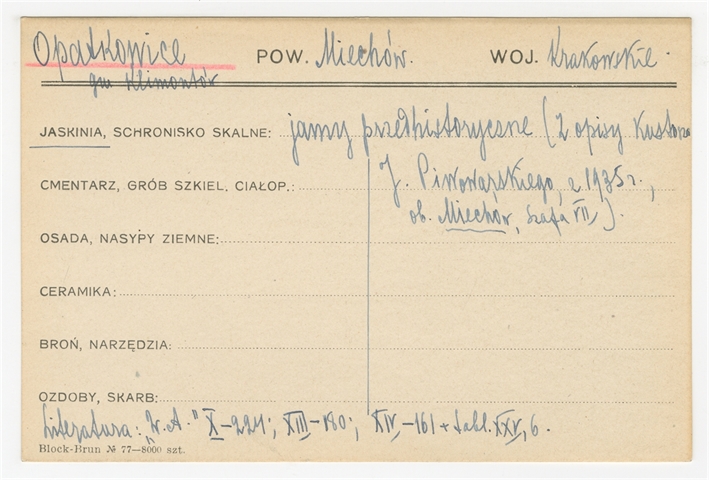 Opatkowice POW. Miechów. WOJ. Krakowskie.
gm Klimontów
JASKINIA, SCHRONISKO SKALNE: jamy przedhistoryczne (2 opisy Kustosza
CMENTARZ, GRÓB SZKIEL, CIAŁOP.: J. Piwowarskiego, z 1935 r.,
ob. Miechów, szafa VII).
OSADA, NASYPY ZIEMNE:
CERAMIKA:
BROŃ, NARZĘDZIA:
OZDOBY, SKARB:
Literatura: „W. A." X-224; XIII-180; XIV,-161 + tabl. XXV, 6.
Block-Brun № 77—8000 szt.